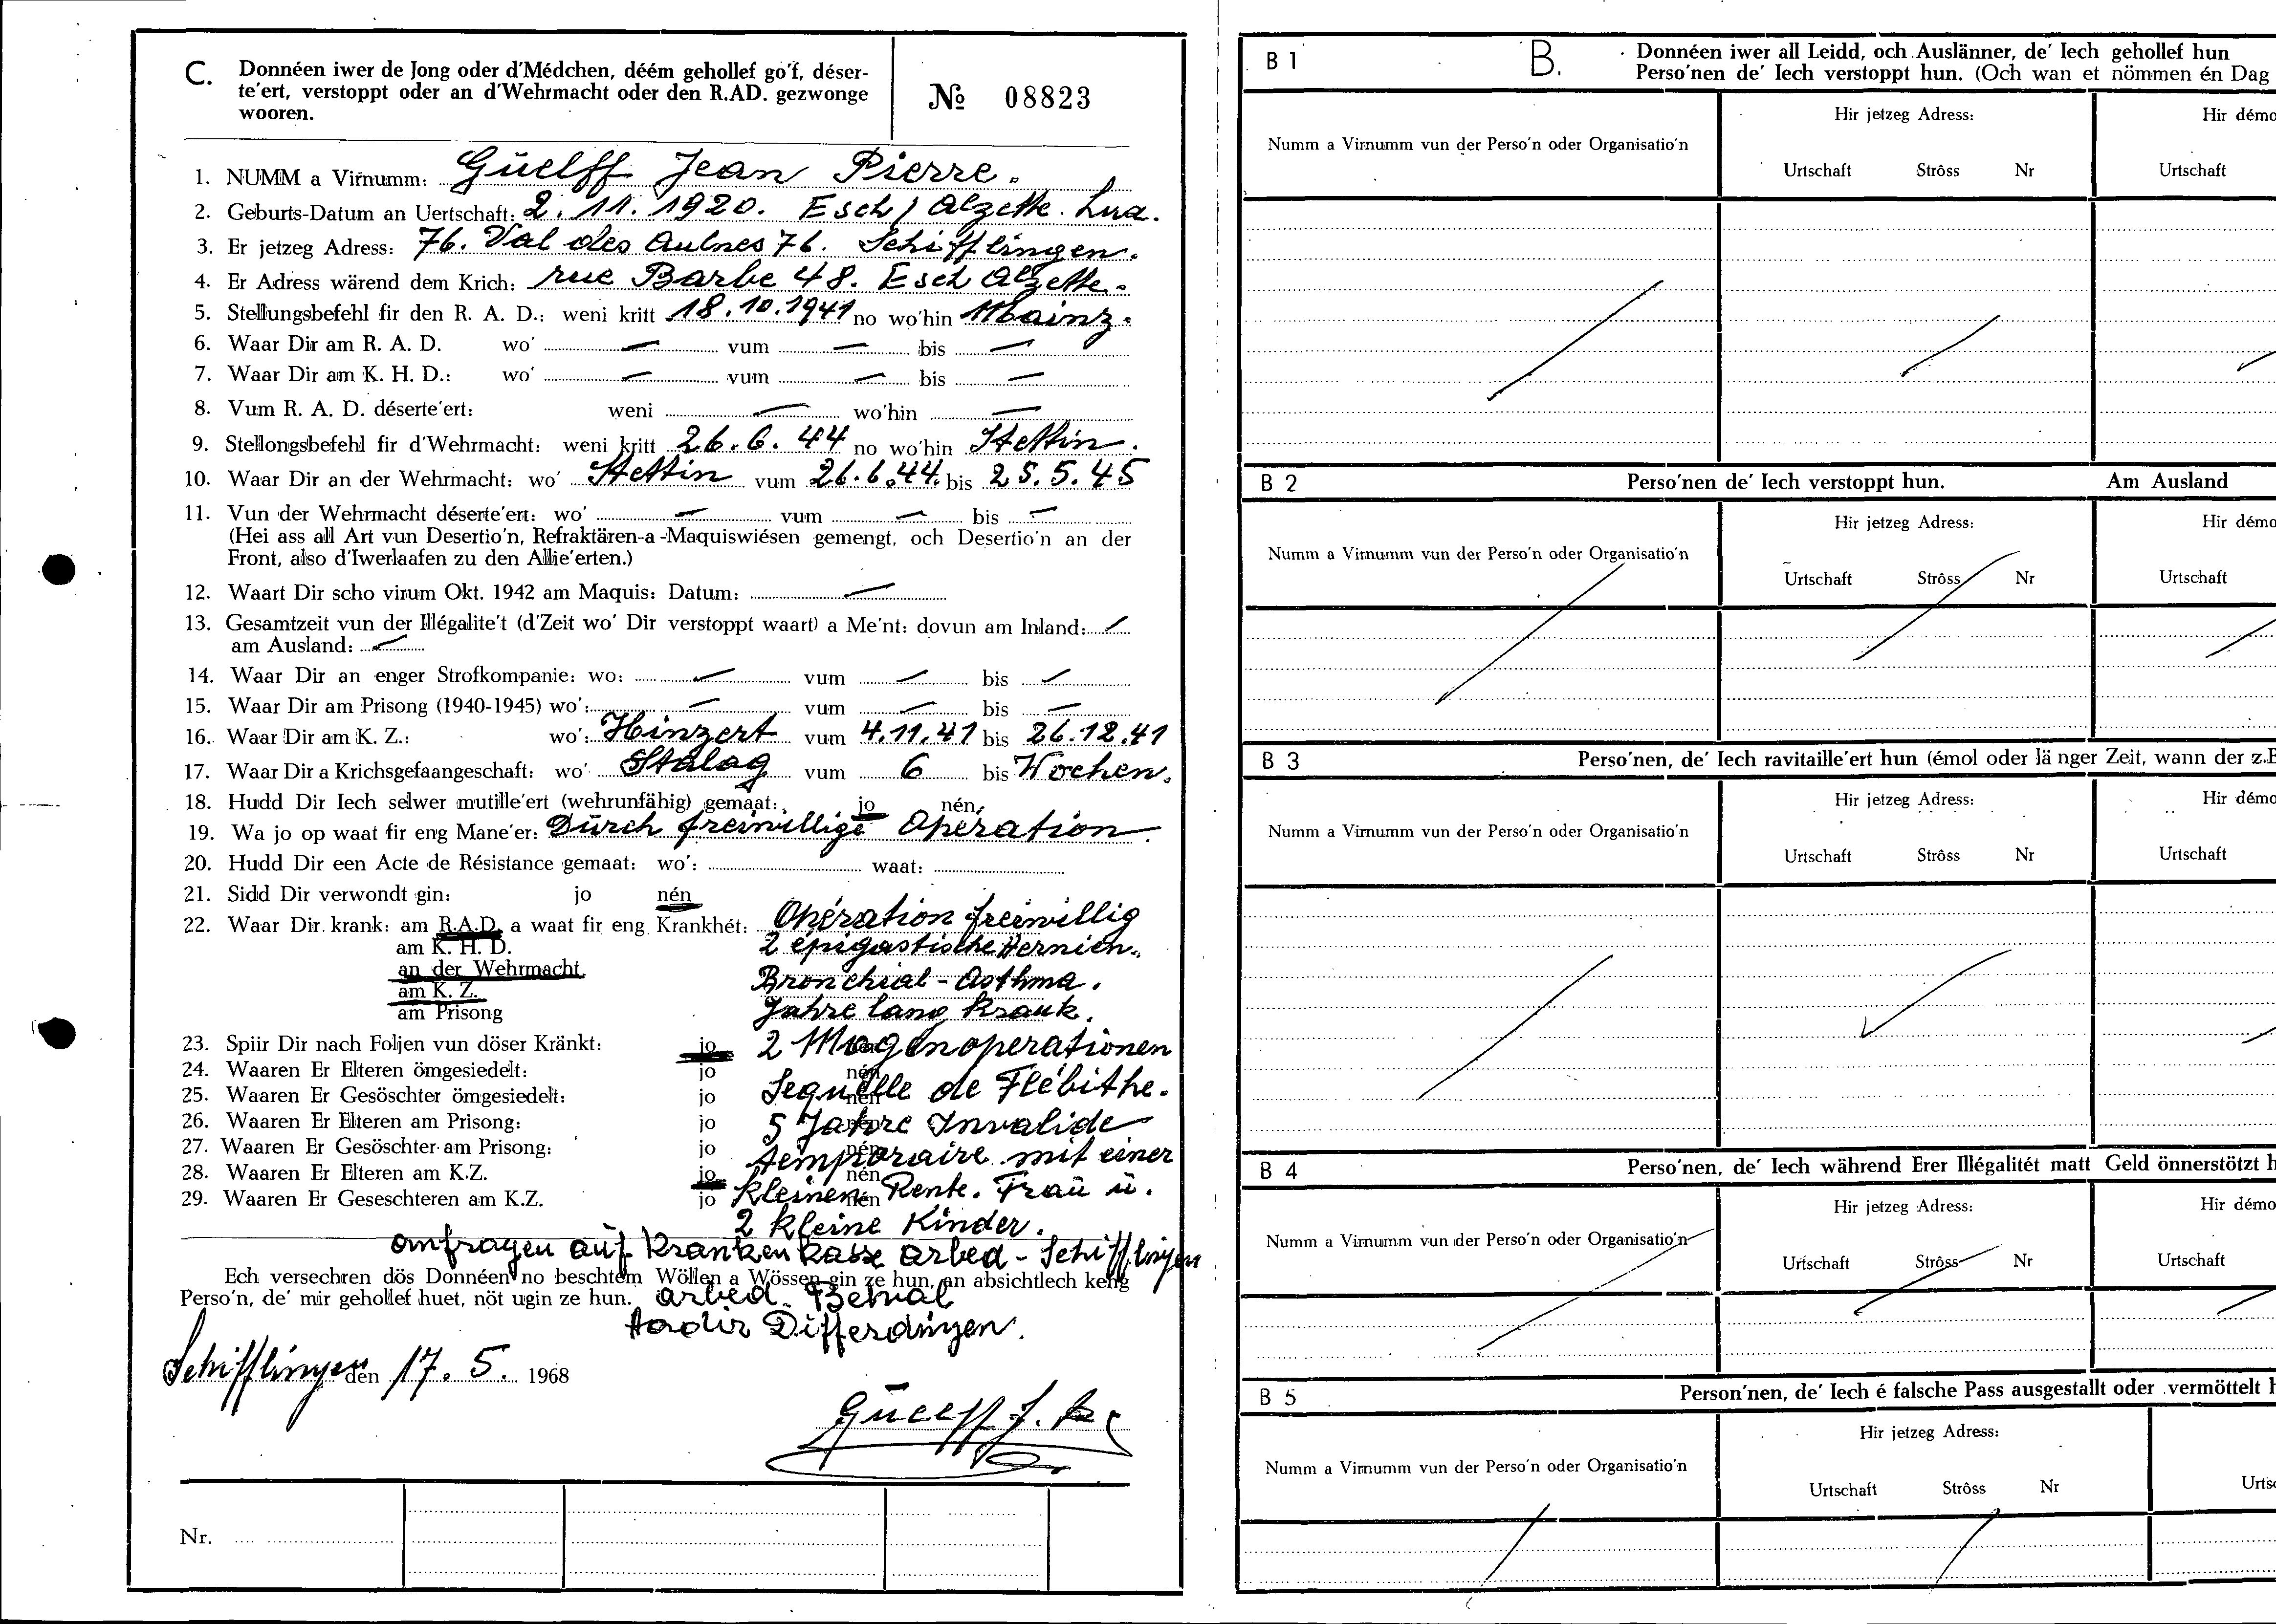 C. Donnéen iwer de Jong oder d'Médchen, déém gehollef go'f, déser-
te'ert, verstoppt oder an d'Wehrmacht oder den R.AD. gezwonge
wooren.
№ 08823
1. NUMM a Virnumm: Güelff Jean Pierre.
2. Geburts-Datum an Uertschaft: 2. 11. 1920. Esch / Alzette. Lux.
3. Er jetzeg Adress: 76. Val des Aulnes 76. Schifflingen.
4. Er Adress wärend dem Krich: rue Barbe 48. Esch Alzette.
5. Stellungsbefehl fir den R. A. D.: weni kritt 18.10.1941 no wo'hin Mainz.
6. Waar Dir am R. A. D. wo' — vum — bis —
7. Waar Dir am K. H. D.: wo' — vum — bis —
8. Vum R. A. D. déserte'ert: weni — wo'hin —
9. Stellongsbefehl fir d'Wehrmacht: weni kritt 26.6.44 no wo'hin Stettin.
10. Waar Dir an der Wehrmacht: wo' Stettin vum 26.6.44. bis 25.5.45
11. Vun der Wehrmacht déserte'ert: wo' — vum — bis —
(Hei ass all Art vun Desertio'n, Refraktären-a-Maquiswiésen gemengt, och Desertio'n an der
Front, also d'Iwerlaafen zu den Allie'erten.)
12. Waart Dir scho virum Okt. 1942 am Maquis: Datum: —
13. Gesamtzeit vun der Illégalite't (d'Zeit wo' Dir verstoppt waart) a Me'nt: dovun am Inland: —
am Ausland: —
14. Waar Dir an enger Strofkompanie: wo: — vum — bis —
15. Waar Dir am Prisong (1940-1945) wo': — vum — bis —
16. Waar Dir am K. Z.: wo': Hinzert vum 4.11.41 bis 26.12.41
17. Waar Dir a Krichsgefaangeschaft: wo' Stalag vum 6 bis Wochen.
18. Hudd Dir Iech selwer mutille'ert (wehrunfähig) gemaat: jo nén.
19. Wa jo op waat fir eng Mane'er: Dürch freiwillige Opération.
20. Hudd Dir een Acte de Résistance gemaat: wo': waat:
21. Sidd Dir verwondt gin: jo nén
22. Waar Dir krank: am R.A.D. a waat fir eng Krankhét: Opération freiwillig
am K. H. D. 2 épigastische Hernien.
an der Wehrmacht Bronchial-Asthma.
am K. Z. Jahre lang krank.
am Prisong
23. Spiir Dir nach Foljen vun döser Kränkt: jo 2 Magenoperationen
24. Waaren Er Elteren ömgesiedelt: jo nén
25. Waaren Er Gesöschter ömgesiedelt: jo nén Sequelle de Flébithe.
26. Waaren Er Elteren am Prisong: jo 5 Jahre Invalide
27. Waaren Er Gesöschter am Prisong: jo nén temporaire mit einer
28. Waaren Er Elteren am K.Z. jo nén
29. Waaren Er Geseschteren am K.Z. jo nén kleinen Rente. Fraü ü.
2 kleine Kinder.
Anfragen aüf Krankenkasse Arbed - Schifflingen
Ech versechren dös Donnéen no beschtem Wöllen a Wössen gin ze hun, an absichtlech keng
Perso'n, de' mir gehollef huet, nöt ugin ze hun. Arbed. Belval
Hadir Differdingen.
Schifflingen den 17. 5. 1968
Güelff J. P.
Nr.
B 1 B. Donnéen iwer all Leidd, och Auslänner, de' Iech gehollef hun
Perso'nen de' Iech verstoppt hun. (Och wan et nömmen én Dag
Hir jetzeg Adress: Hir démo
Numm a Virnumm vun der Perso'n oder Organisatio'n
Urtschaft Strôss Nr Urtschaft
B 2 Perso'nen de' Iech verstoppt hun. Am Ausland
Hir jetzeg Adress: Hir démo
Numm a Virnumm vun der Perso'n oder Organisatio'n
Urtschaft Strôss Nr Urtschaft
B 3 Perso'nen, de' Iech ravitaille'ert hun (émol oder länger Zeit, wann der z.B
Hir jetzeg Adress: Hir démo
Numm a Virnumm vun der Perso'n oder Organisatio'n
Urtschaft Strôss Nr Urtschaft
B 4 Perso'nen, de' Iech während Erer Illégalitét matt Geld önnerstötzt h
Hir jetzeg Adress: Hir démo
Numm a Virnumm vun der Perso'n oder Organisatio'n
Urtschaft Strôss Nr Urtschaft
B 5 Person'nen, de' Iech é falsche Pass ausgestallt oder vermöttelt h
Hir jetzeg Adress:
Numm a Virnumm vun der Perso'n oder Organisatio'n
Urtschaft Strôss Nr Urtsc